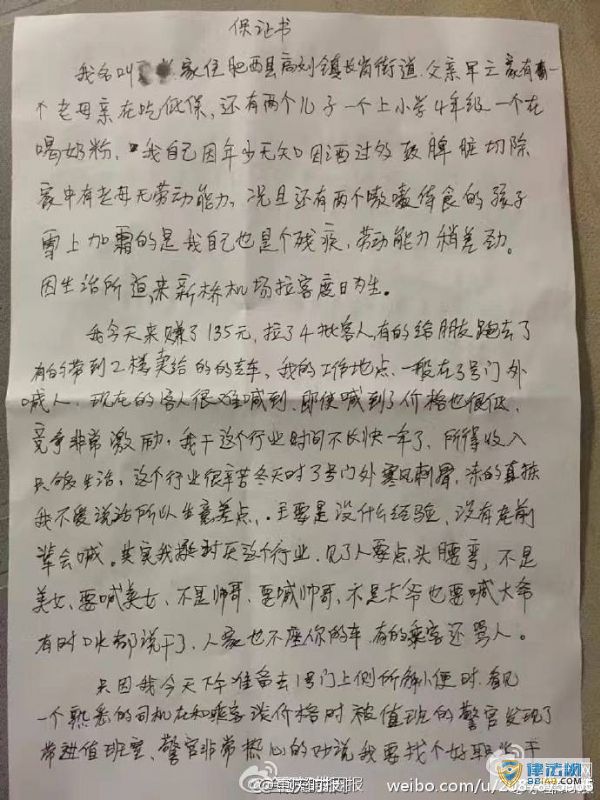 保证书
我名叫 家住肥西县高刘镇长岗街道.父亲早亡家有
个老母亲在吃低保,还有两个儿子一个上小学4年级一个在
喝奶粉, 我自己因年少无知因酒过敏致脾脏切除
家中有老母无劳动能力,况且还有两个嗷嗷待食的孩子
雪上加霜的是我自己也是个残疾,劳动能力稍差劲。
因生活所迫,来新桥机场拉客度日为生。
我今天来赚了135元,拉了4批客人,有的给朋友跑去了
有的带到2楼卖给的的士车,我的工作地点一般在3号门外
喊人.现在的客人很难喊到.即使喊到了价格也很低.
竞争非常激励,我干这个行业时间不长快一年了,所得收入
只够生活,这个行业很辛苦冬天时3号门外寒风刺骨,冻的直抹
我不爱说话所以生意差点,主要是没什么经验,没有老前
辈会喊。其实我挺讨厌这个行业,见了人要点头腰弯,不是
美女,要喊美女,不是帅哥,要喊帅哥,不是大爷也要喊大爷
有时口水都说干了,人家也不座你的车,有的乘客还骂人。
只因我今天下午准备去1号门上侧所解小便时,看见
一个熟悉的司机在和乘客谈价格时被值班的警官发现了
带进值班室,警官非常热心的劝说我要找个好职业干
重庆时报
weibo.com/u/
律法网
88148.COM